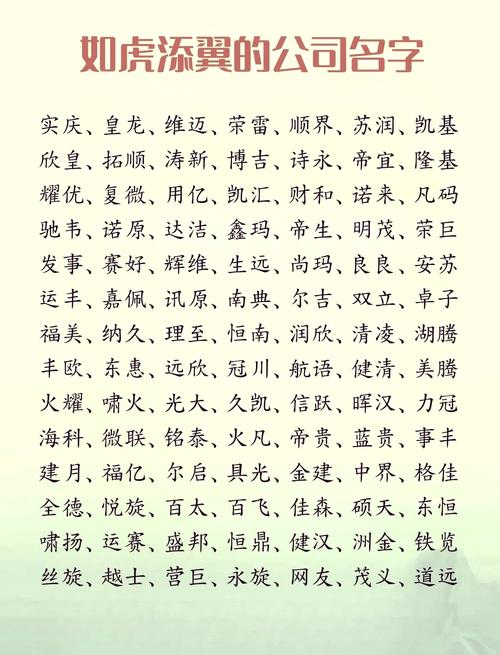 如虎添翼的公司名字
实庆、皇龙、维迈、荣雷、顺界、苏润、凯基
欣皇、拓顺、涛新、博吉、诗永、帝宜、隆基
耀优、复微、用亿、凯汇、财和、诺来、凡码
驰韦、诺原、达洁、鑫玛、帝生、明茂、荣巨
发事、赛好、辉维、生远、尚玛、良良、安苏
运丰、嘉佩、讯原、南典、尔吉、双立、卓子
福美、纳久、理至、恒南、润欣、清凌、湖腾
丰欧、东惠、远欣、冠川、航语、健清、美腾
火耀、啸火、光大、久凯、信跃、晖汉、力冠
海科、微联、铭泰、火凡、帝贵、蓝贵、事丰
建月、福亿、尔启、具光、金建、中界、格佳
全德、悦旋、百太、百飞、佳森、硕天、东恒
啸扬、运赛、盛邦、恒鼎、健汉、洲金、铁览
丝旋、越士、营巨、永旋、网友、茂义、道远